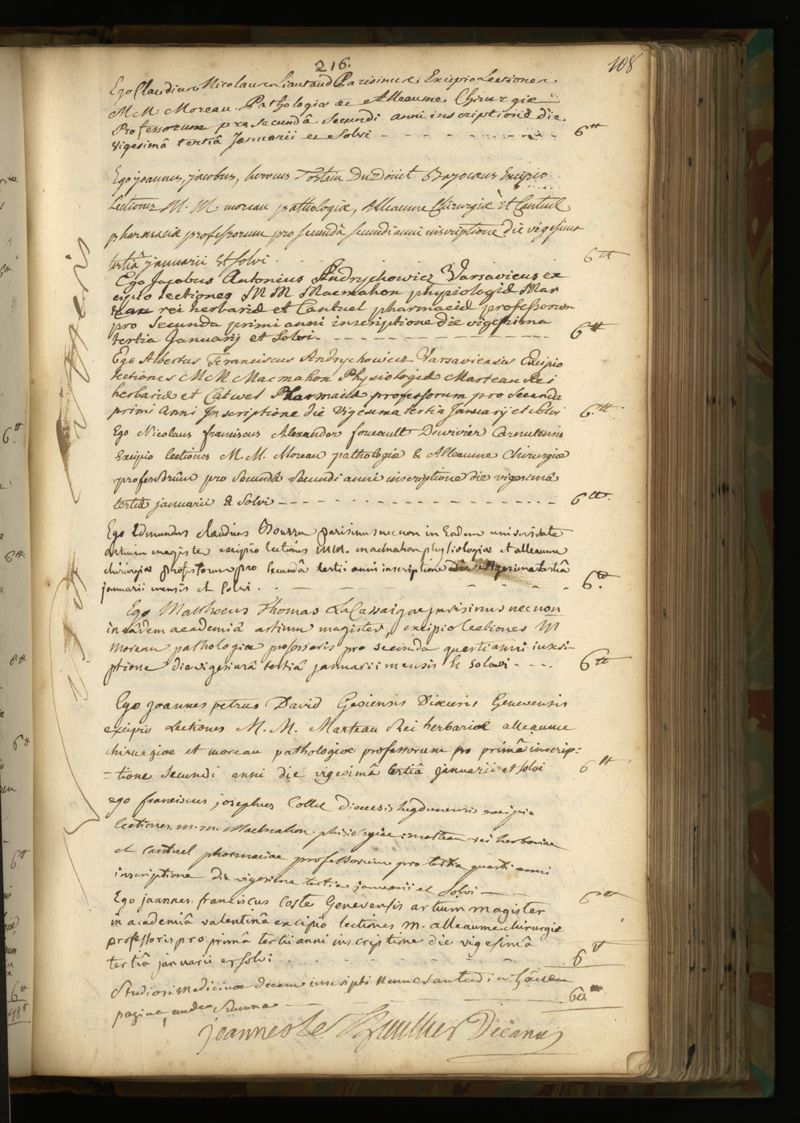 216.
108
Ego Claudius Nicolaus Liautaud Parisinus Excipio Lectiones
M M Moreau Pathologiæ et Alleaume Chirurgiæ
Professorum pro secundâ secundi anni inscriptione die
vigesimâ tertiâ Januarii et Solvi 6tt
Ego joannes, jacobus, Tostain Du Douet Excipio
Lectiones M. M moreau pathologiæ, Alleaume Chirurgiæ et Cantuel
pharmaciæ professorum pro secundâ secundi anni inscriptione die vigesima
tertiâ januarii et solvi 6tt
Ego Jacobus Antonius Andrychowicz Varsavicus ex
cipio lectiones MM Macmahon physiologiæ Mar
teau rei herbariæ et Cantuel pharmaciæ professorum
pro Secunda primi anni inscriptione die vigesima
tertia Januarij et Solvi. 6tt
Ego Albertus Franciscus Andrychowicz Varsaviensis Excipio
lectiones MM Macmahon Physiologiæ Marteau Rei
herbariæ et Catuel Pharmaciæ professorum pro Secunda
primi Anni Inscriptione die Vigesima tertia Januarij et Solvi 6tt
Ego Nicolaus franciscus Alexander foucault
Excipio lectiones M. M. Moreau pathologiæ & Alleaume chirurgiæ
professorum pro secundâ secundi anni inscriptione die vigesimâ
tertiâ januarii & Solvi 6tt
Ego Edmundus claudius Bourru parisinus nec non in Eadem universitate
artium magister excipio lectiones MM. macmahon physiologiæ et alleaume
chirurgiæ professorum pro secundâ tertii anni inscriptione die vigesima tertiâ
januarii mensis et solvi. 6tt
Ego Mathæus Thomas LaCassaigne parisinus nec non
in eâdem academiâ artium magister, excipio lectiones M
moreau pathologiæ professoris pro secunda quarti anni inscri-
ptione die vigesimâ tertiâ januarii mensis et solvi 6tt
Ego joannes petrus David Gesiensis Diæcesis Genevensis
excipio Lectiones M. M. Marteau Rei herbariæ alleaume
chirurgiæ et moreau pathologiæ professorum pro primâ inscrip=
=tione secundi anni die vigesimâ tertiâ januarii et solvi 6tt
ego franciscus josephus Collet diocesis lugdunensis excipio
lectiones m. m. Macmahon phisiologiæ marteau rei herbariæ
et cantuel pharmaciæ professorum pro tertia quarti anni
inscriptione die vigesima tertia januarii et solvi 6tt
Ego joannes franciscus Coste Genevensis artium magister
in academiâ valentinâ excipio lectiones m. alleaume chirurgiæ
professoris pro primâ tertii anni inscriptione die vigesimâ
tertiâ januarii et solvi 6tt
Studiosi medicinæ decem inscripti numerantur in hacce
pagina, unde summa 60tt
joannes Le Thieullier Decanus